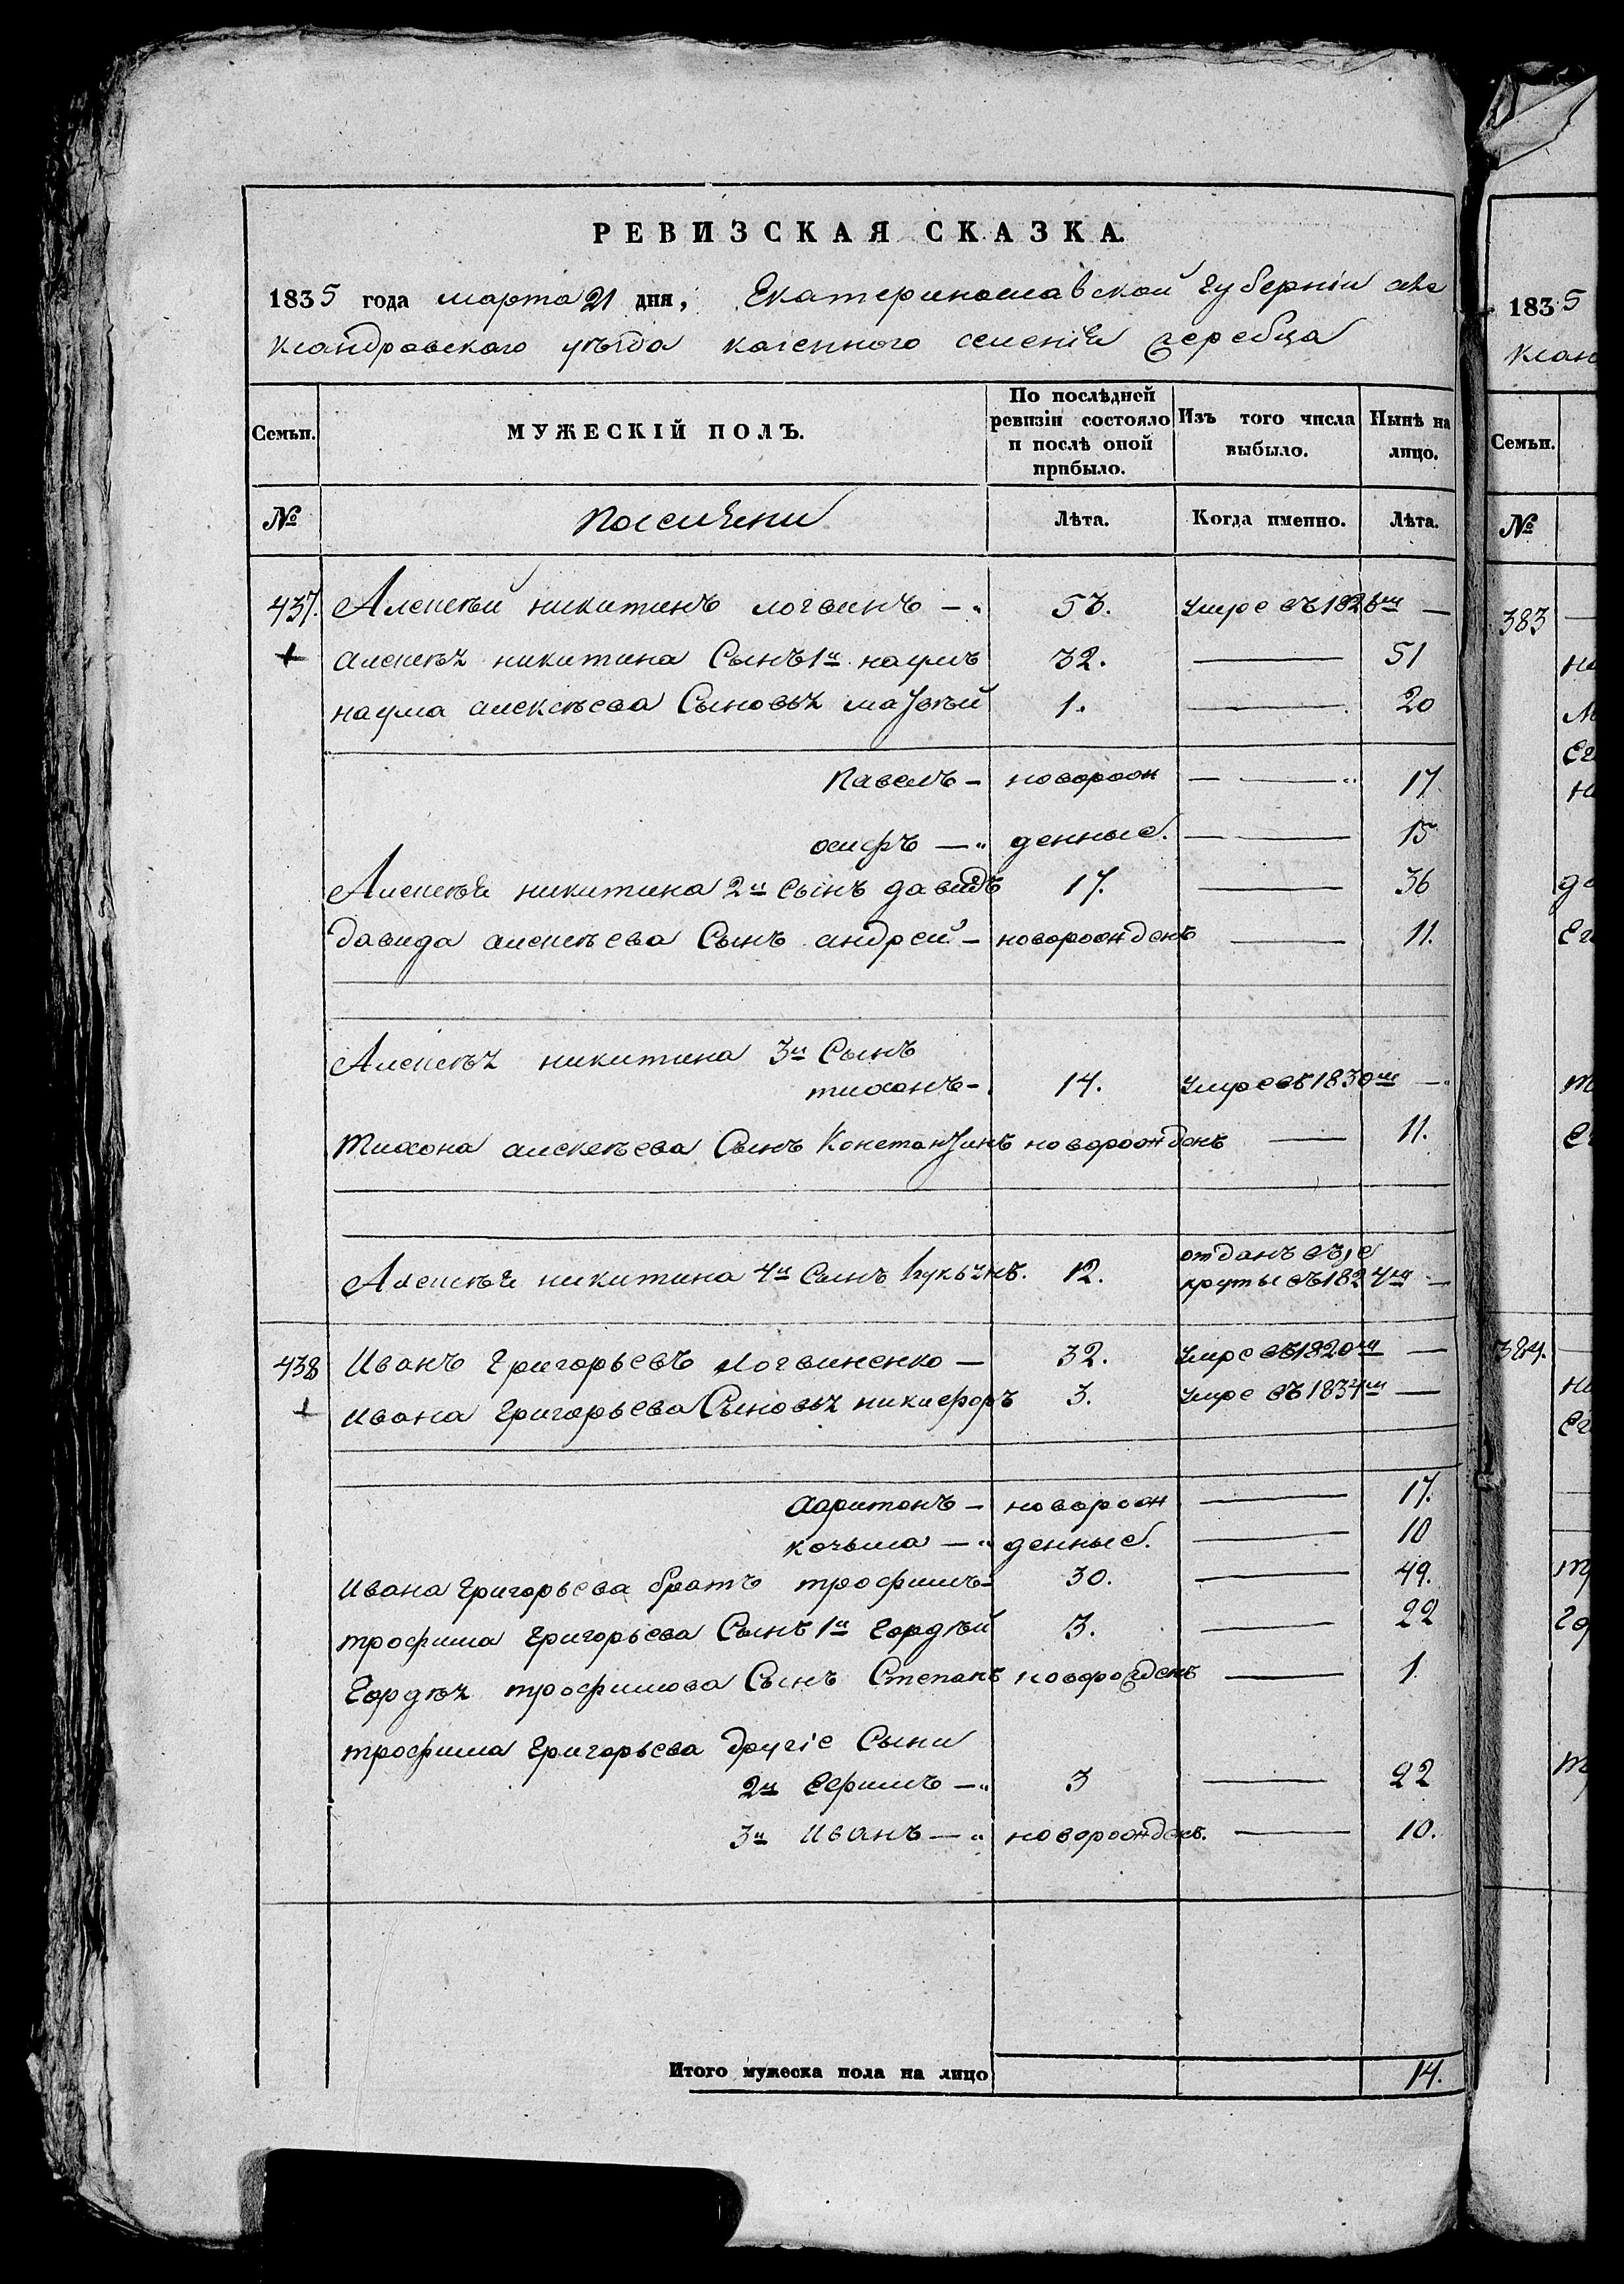 РЕВИЗСКАЯ СКАЗКА.
1835 года марта 21 дня, Екатеринославской губерніи але
ксандровскаго уѣзда казенного селенія жеребца
Семьи. МУЖЕСКІЙ ПОЛЪ. По послѣдней ревизіи состояло и послѣ оной прибыло. Изъ того числа выбыло. Нынѣ на лицо.
№ Поселяни Лѣта. Когда именно. Лѣта.
437. Алексѣй никитинъ логвинъ — 53. умре въ 182 —
алексѣя никитина Сынъ 1й наумъ 32. — 51
наума алексѣева Сыновья матвѣй 1. — 20
Павелъ — новорож — 17
осифъ — денные. — 15
Алексѣя никитина 2й сынъ давидъ 17. — 36
давида алексѣева Сынъ андрей — новорожденъ — 11.
Алексѣя никитина 3й Сынъ
тихонъ — 14. умре въ 1830м —
тихона алексѣева Сынъ Константинъ новорожденъ — 11.
отданъ въ ре
Алексѣя никитина 4й сынъ лукьянъ. 12. круты въ 1824м —
438 Иванъ Григорьевъ логвиненко — 32. умре въ 1820м —
Ивана Григорьева Сыновья никифоръ 3. умре въ 1834м —
Харитонъ — новорож — 17.
козьма — денные. — 10
Ивана Григорьева братъ трофимъ — 30. — 49.
трофима Григорьева Сынъ 1й Гордѣй 3. — 22
Гордѣя трофимова Сынъ Степанъ новорожденъ — 1.
трофима Григорьева другіе Сыни
2й Ефимъ — 3 — 22
3й Иванъ — новорожденъ. — 10.
Итого мужеска пола на лицо 14.
1835
ксан
Семьи.
№
383
384.